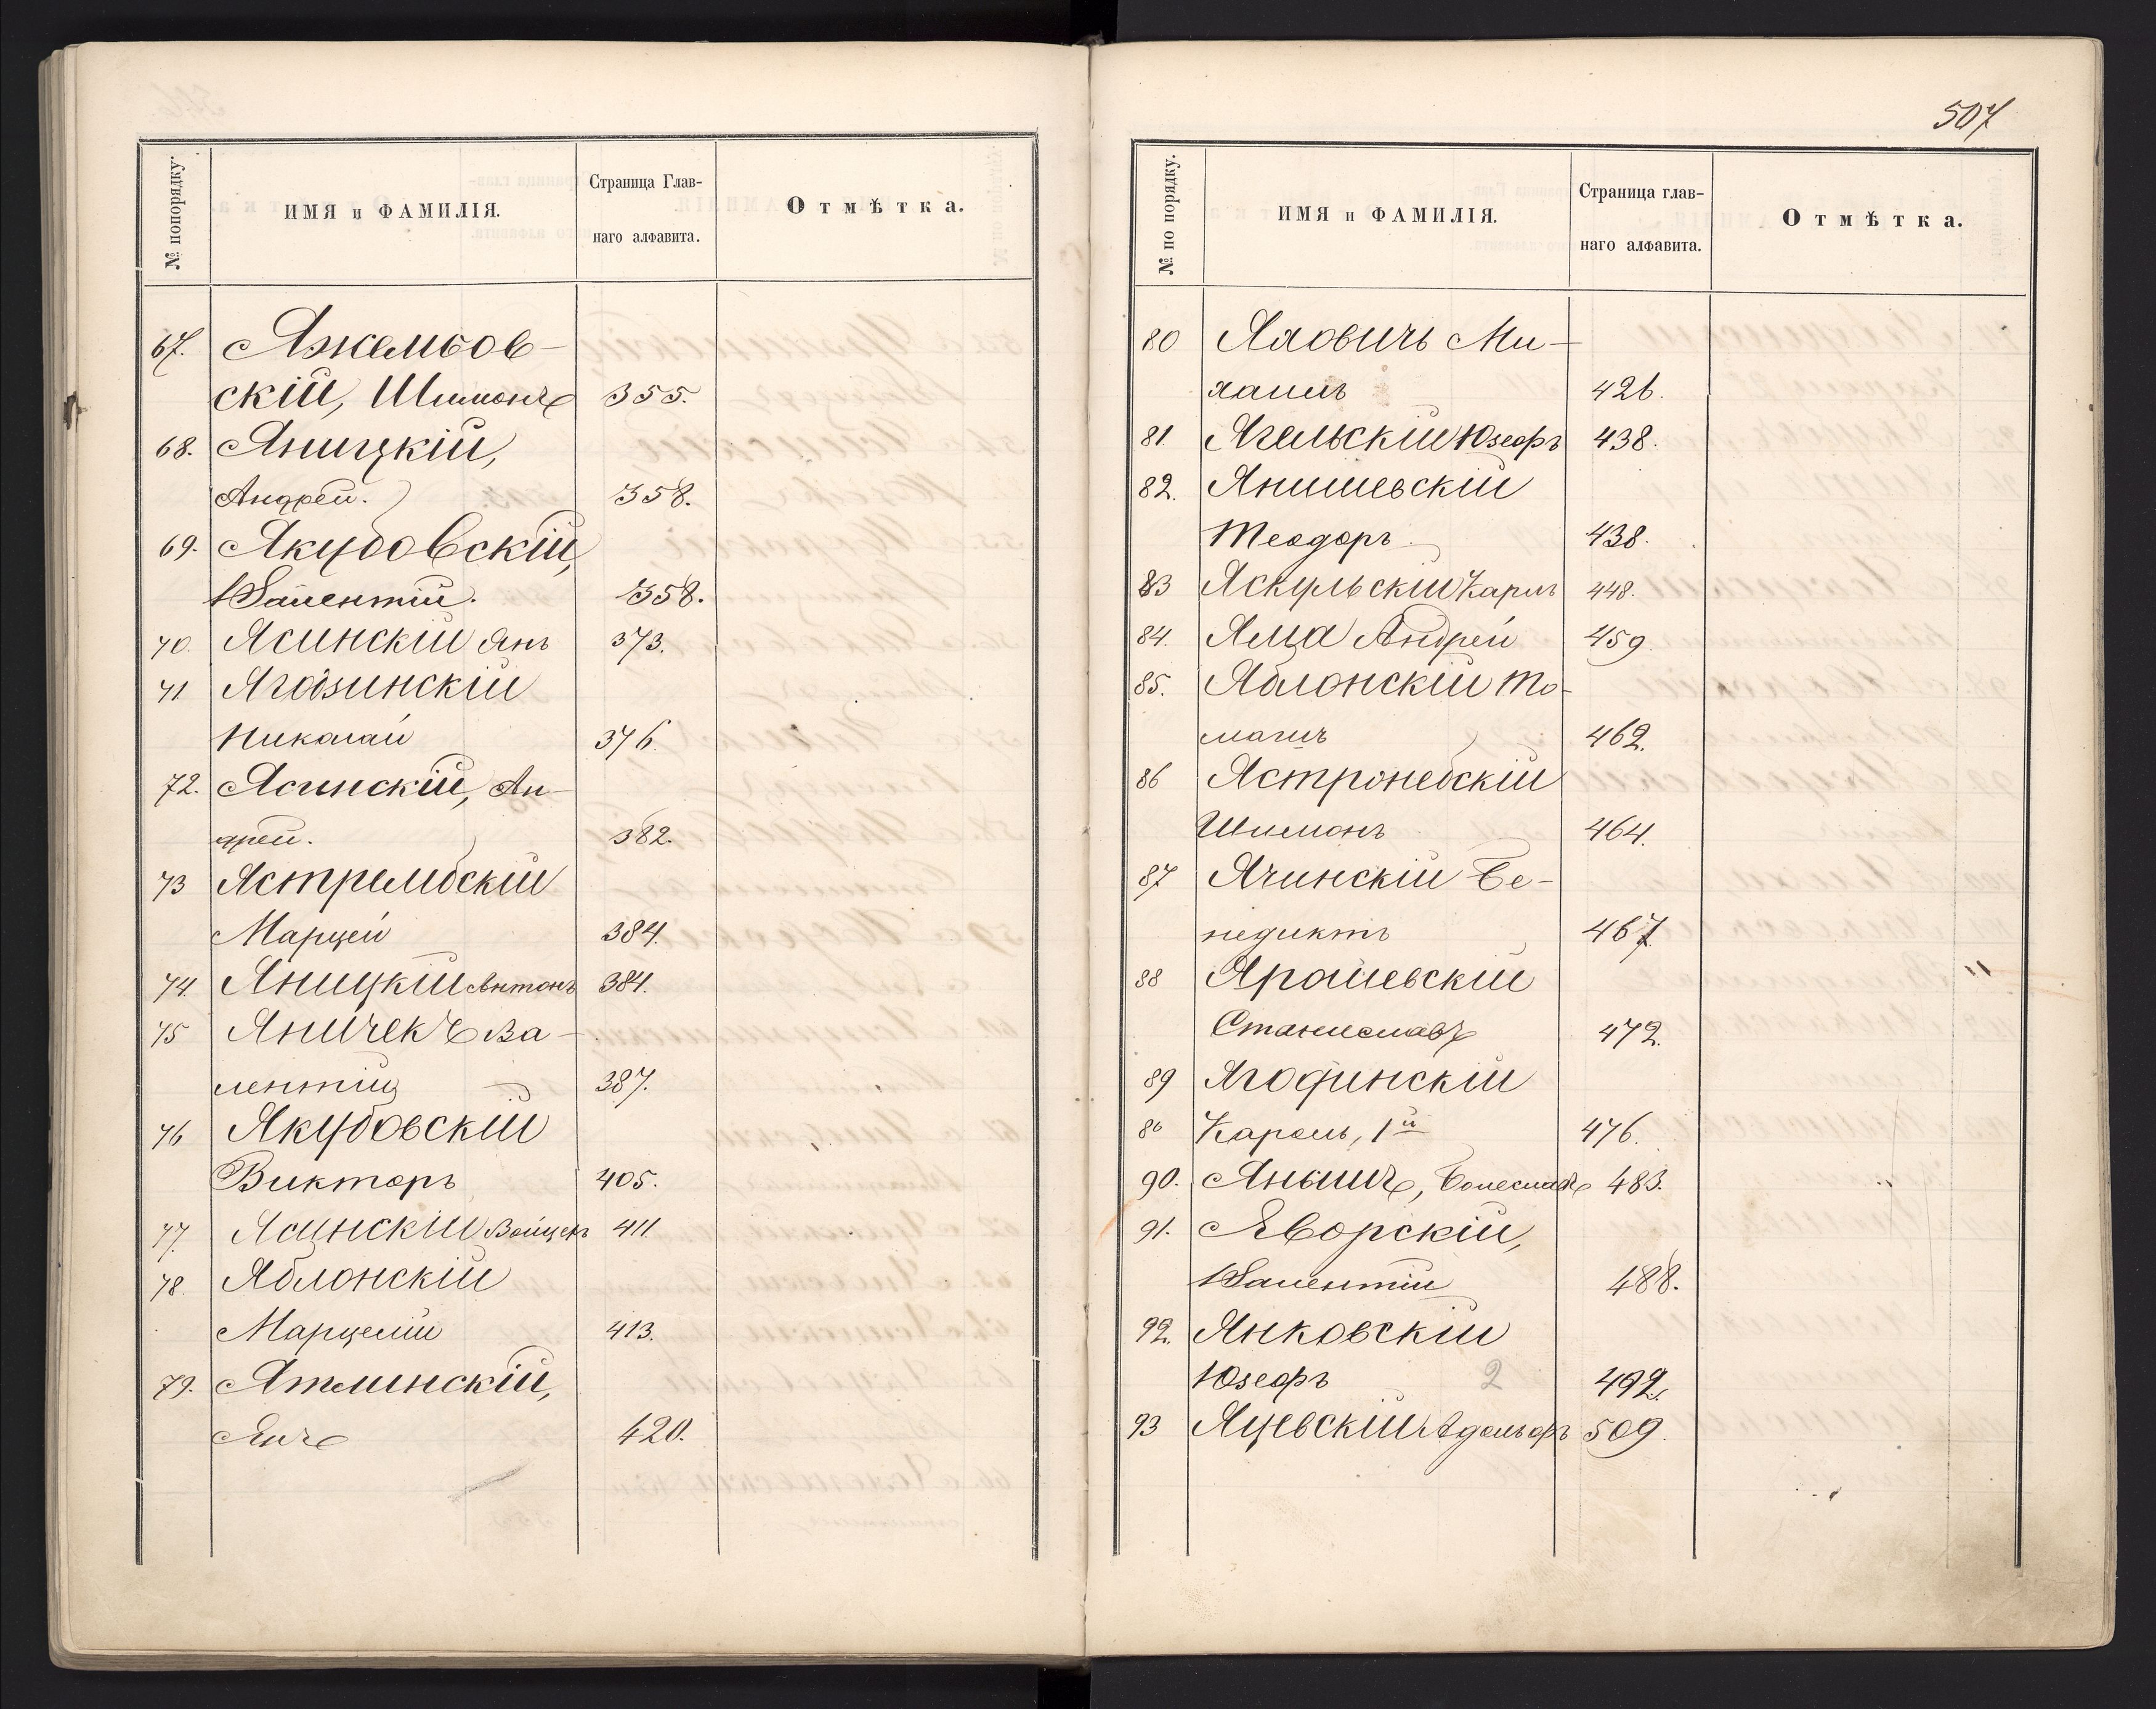 № попорядку.
ИМЯ и ФАМИЛІЯ.
Страница Глав-
наго алфавита.
Отмѣтка.
67. Яжембов-
скій, Шимонъ 355.
68. Яницкій,
Андрей. 358.
69. Якубовскій,
Валентій. 358.
70. Ясинскій Янъ 373.
71 Ягозинскій
Николай 376.
72. Ясинскій, Ан-
дрей. 382.
73 Ястрембскій
Марцей 384.
74. Яницкій Антонъ 384.
75 Яничекъ Ва-
лентій 387.
76 Якубовскій
Викторъ 405.
77. Ясинскій Войцех 411.
78. Яблонскій
Марцелій 413.
79. Ятминскій,
Янъ 420.
507
№ по порядку.
ИМЯ и ФАМИЛІЯ.
Страница глав-
наго алфавита.
Отмѣтка.
80 Яховичъ Ми-
хаилъ 426.
81. Ягельскій Юзефъ 438.
82. Янишевскій
Теодоръ 438.
83 Яскульскій Карлъ 448.
84. Яма Андрей 459.
85. Яблонскій То-
машъ 462.
86 Ястронебскій
Шимонъ 464.
87 Ячинскій Бе-
недиктъ 467.
88 Ярошевскій
Станиславъ 472.
89 Ягодинскій
80 Кароль, 1й 476.
90. Янышъ, Болеславъ 483.
91. Яворскій,
Валентій 488.
92. Янковскій
Юзефъ 2 492.
93 Яцевскій Адольфъ 509.